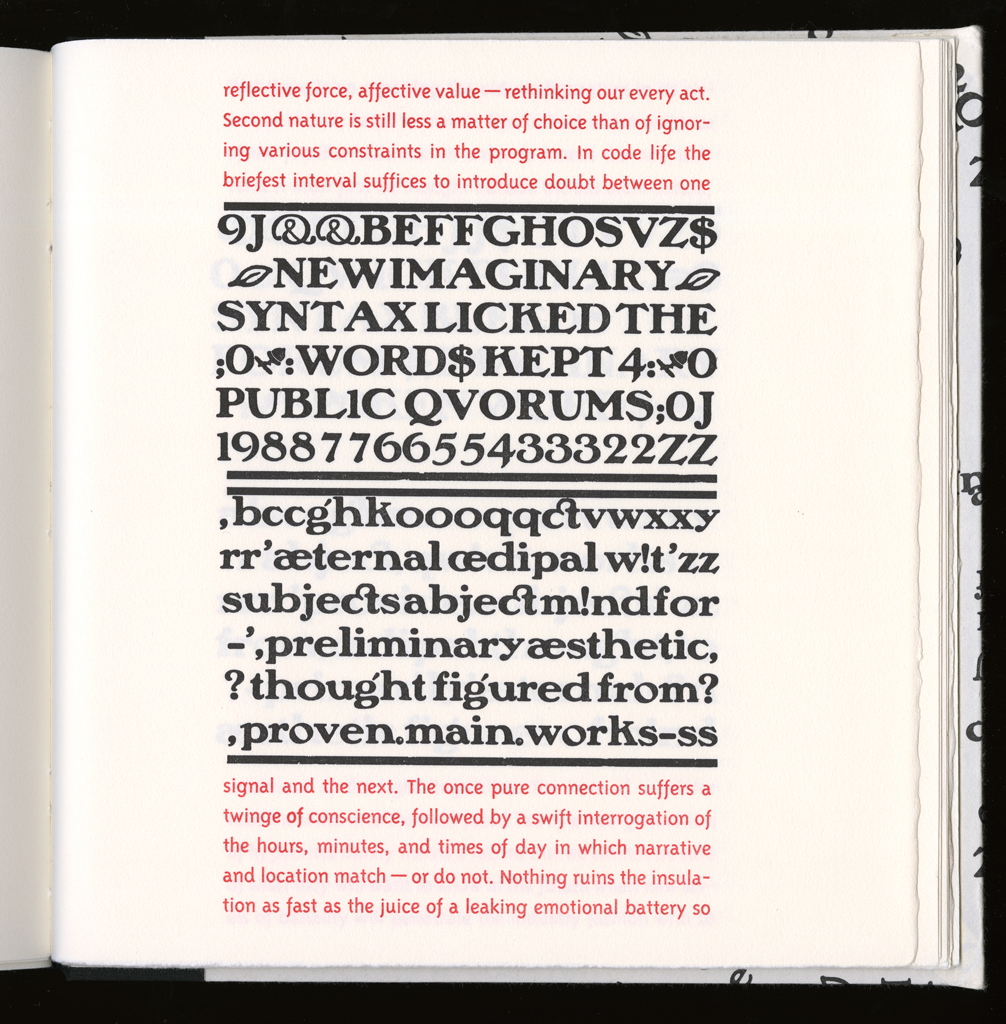 reflective force, affective value — rethinking our every act.
Second nature is still less a matter of choice than of ignor-
ing various constraints in the program. In code life the
briefest interval suffices to introduce doubt between one
9J&&BEFFGHOSVZ$
NEW IMAGINARY
SYNTAX LICKED THE
;O:WORD$ KEPT 4:O
PUBL1C QVORUMS;0J
19887766554333322ZZ
,bccghkoooqqctvwxxy
rr’æternal œdipal w!t’zz
subjects abject m!nd for
-’,preliminary æsthetic,
?thought figured from?
,proven.main.works-ss
signal and the next. The once pure connection suffers a
twinge of conscience, followed by a swift interrogation of
the hours, minutes, and times of day in which narrative
and location match — or do not. Nothing ruins the insula-
tion as fast as the juice of a leaking emotional battery so